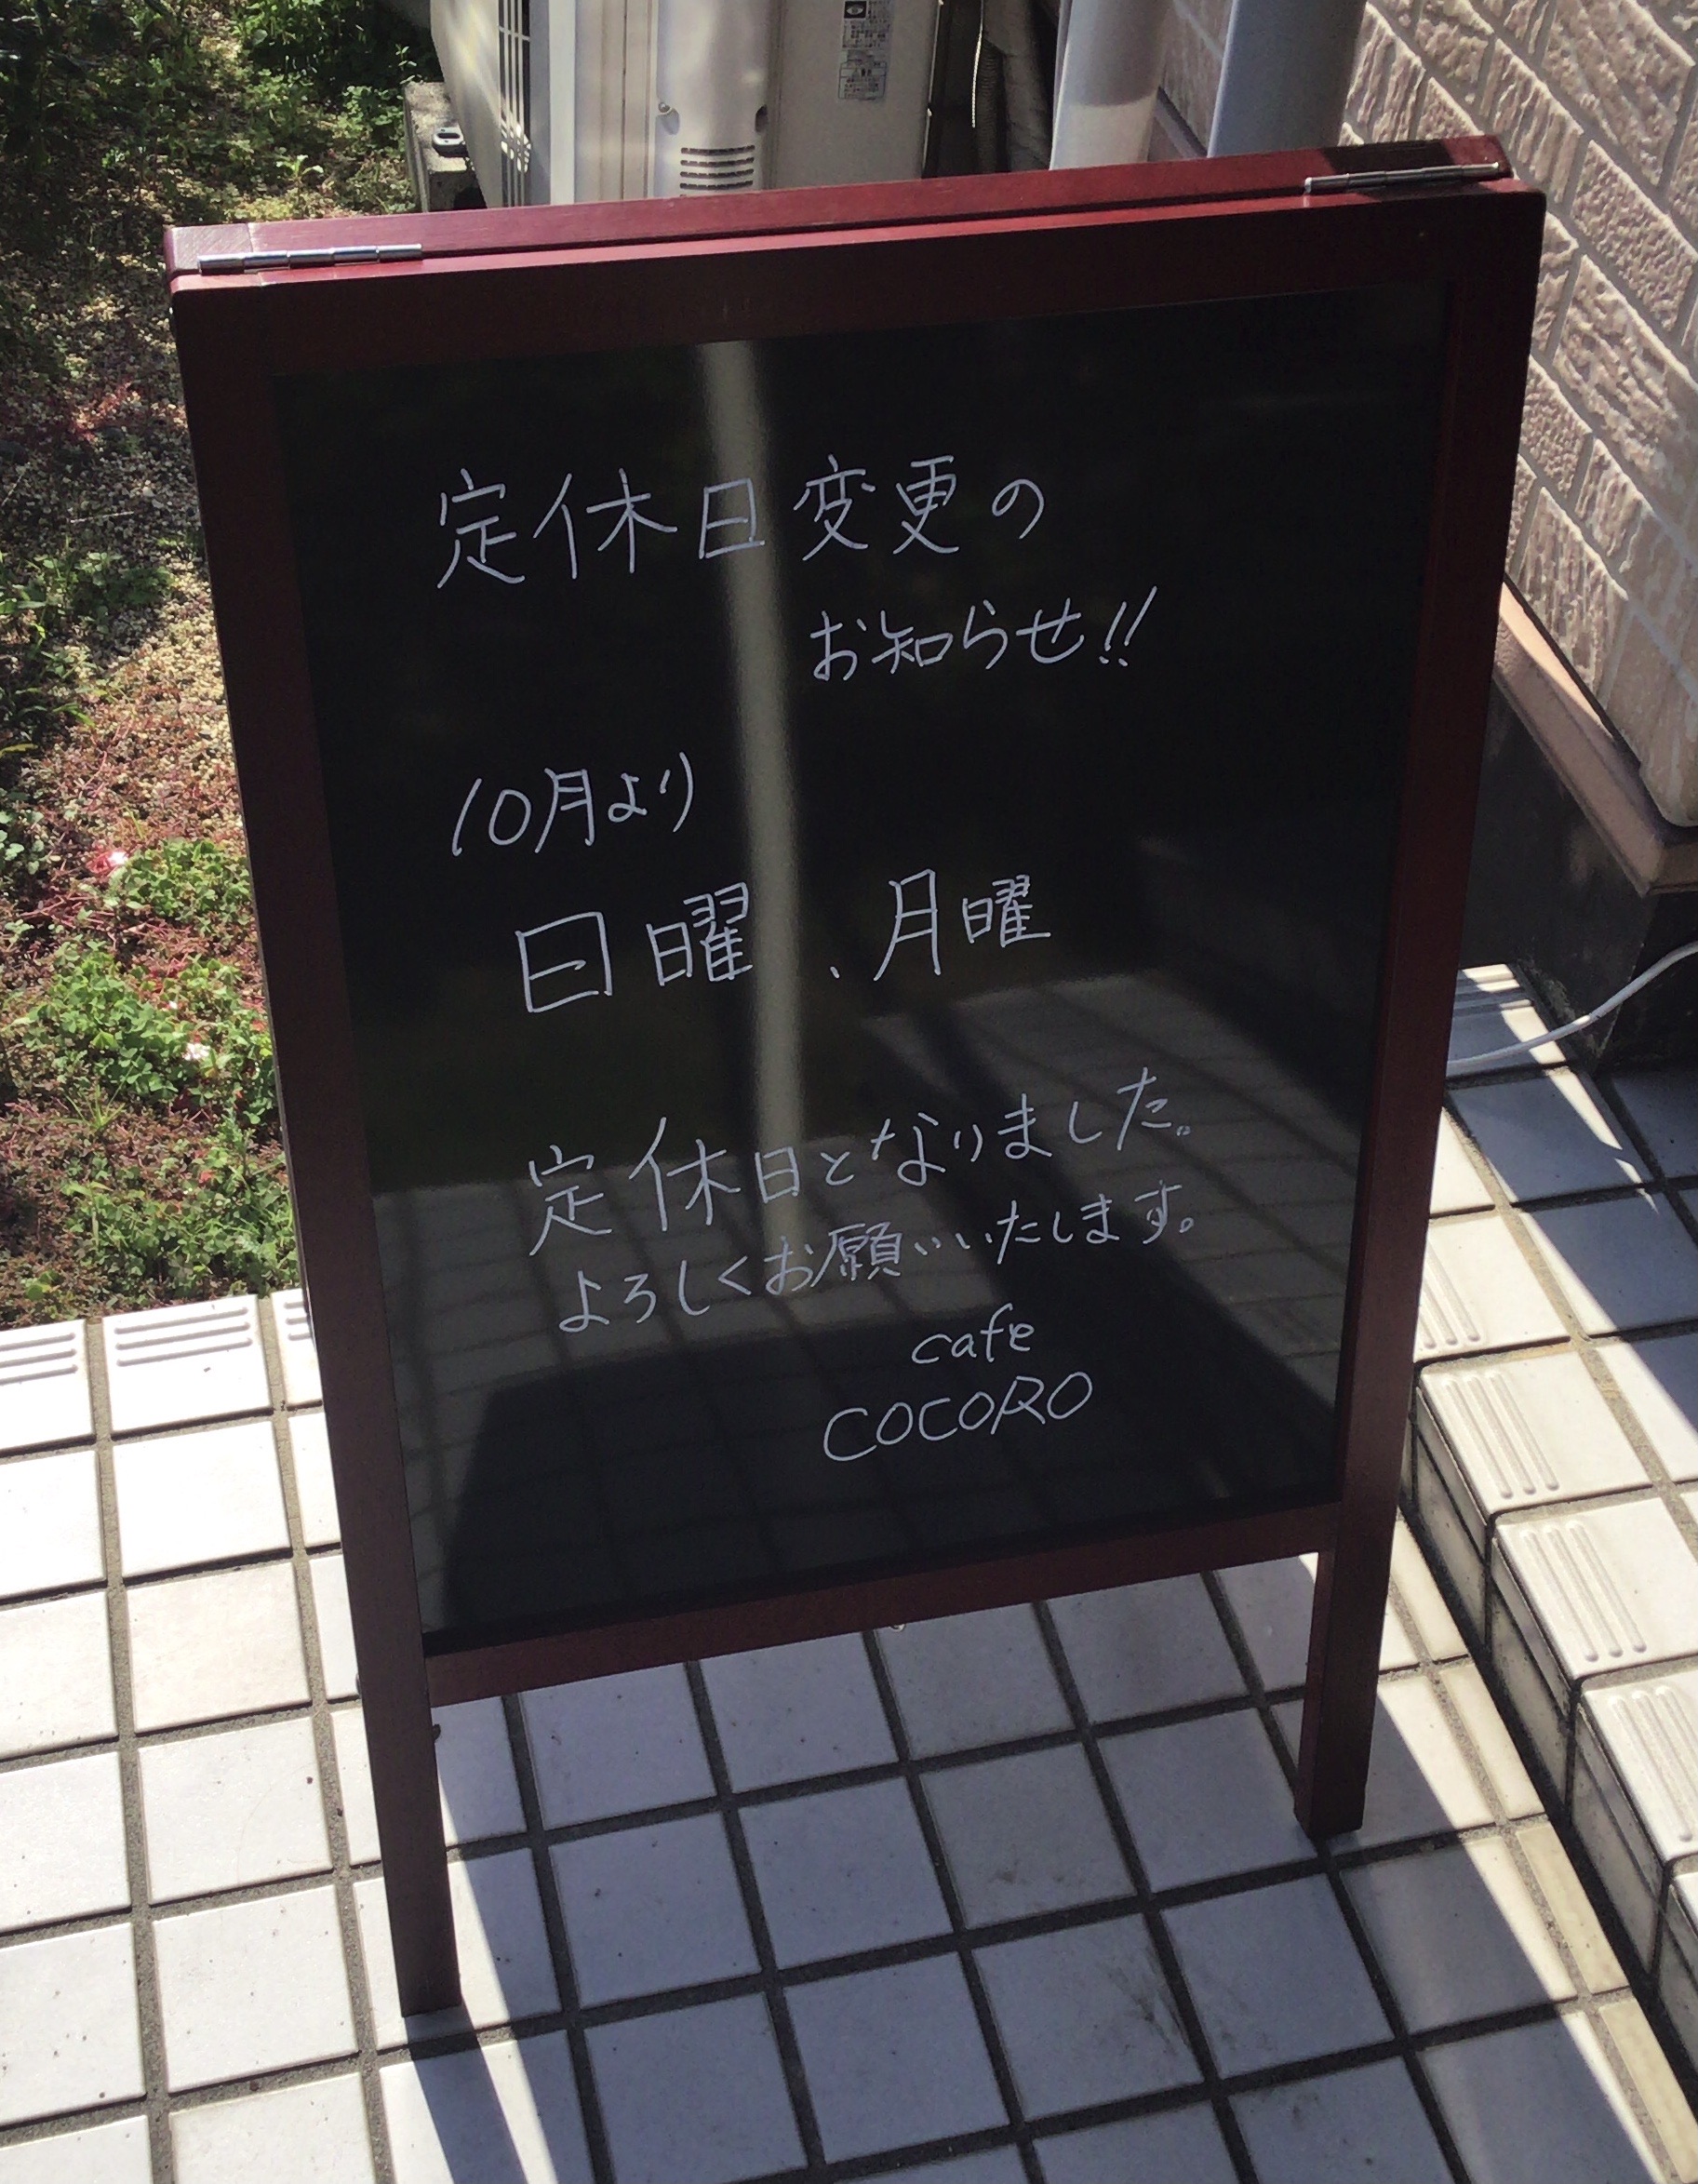 定休日変更の
お知らせ!!
10月より
日曜、月曜
定休日となりました。
よろしくお願いいたします。
cafe
COCORO